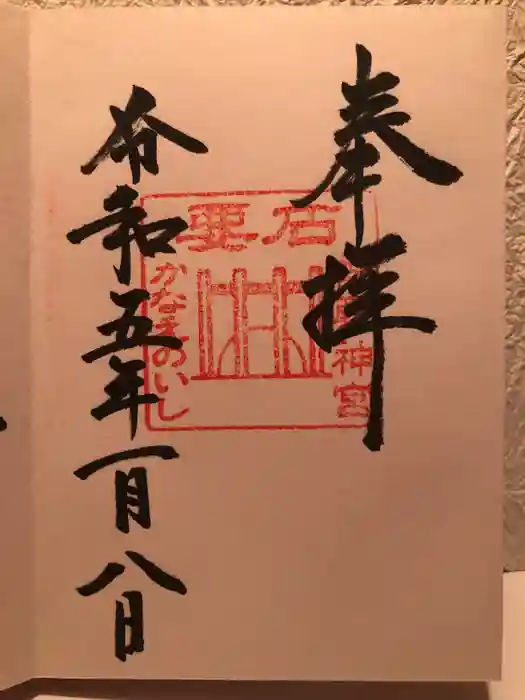 奉拝
神宮
要石
かなめのいし
令和五年一月八日